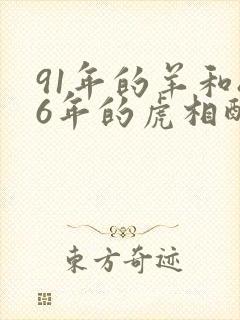 91年的羊和
6年的虎相
东方奇迹